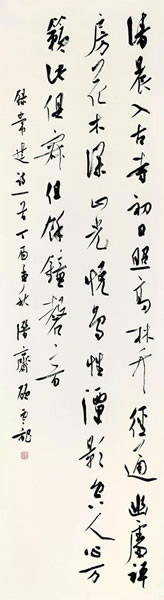 清晨入古寺初日照高林竹径通幽处禅
房花木深山光悦鸟性潭影空人心万
籁此俱寂但余钟磬音
录常建诗一首丁酉年秋